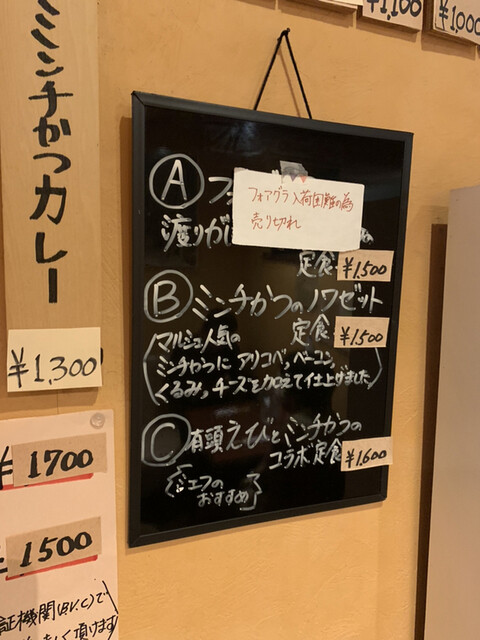 ¥1,100
¥1,000
ミンチかつカレー
¥1,300
¥1700
¥1500
証機関(B.V.C)で
Ⓐ フォ
フォアグラ入荷困難の為
売り切れ
渡りが
定食 ¥1,500
Ⓑ ミンチかつのノワゼット
定食 ¥1,500
マルシェ人気の
ミンチかつに アリコベ、ベーコン、
くるみ、チーズを加えて仕上げました
Ⓒ 有頭えびとミンチかつの
コラボ定食 ¥1,600
シェフの
おすすめ